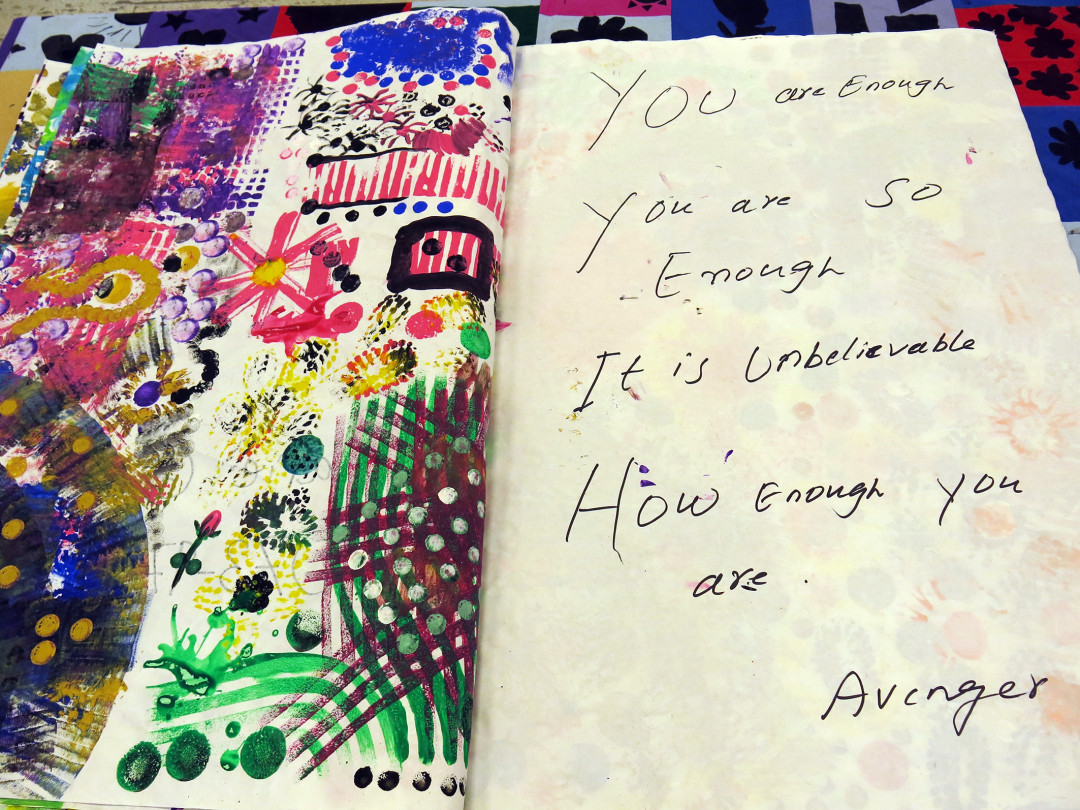 You are Enough
You are so
Enough
It is Unbelievable
How Enough you
are.
Avenger